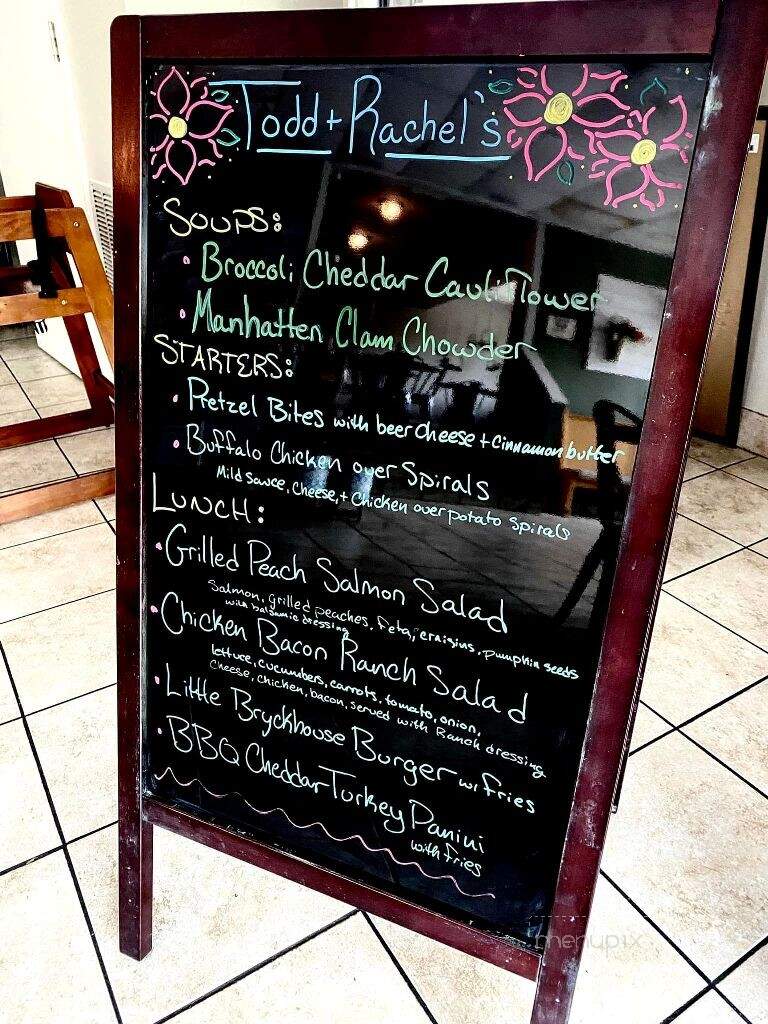 Todd + Rachel's
SOUPS:
• Broccoli Cheddar Cauliflower
• Manhatten Clam Chowder
STARTERS:
• Pretzel Bites with beer cheese + cinnamon butter
• Buffalo Chicken over Spirals
Mild sauce, cheese, + chicken over potato spirals
LUNCH:
• Grilled Peach Salmon Salad
Salmon, grilled peaches, feta, craisins, pumpkin seeds
with balsamic dressing
• Chicken Bacon Ranch Salad
lettuce, cucumbers, carrots, tomato, onion,
cheese, chicken, bacon, served with Ranch dressing
• Little Bryckhouse Burger w/ fries
• BBQ Cheddar Turkey Panini
with fries
menupix